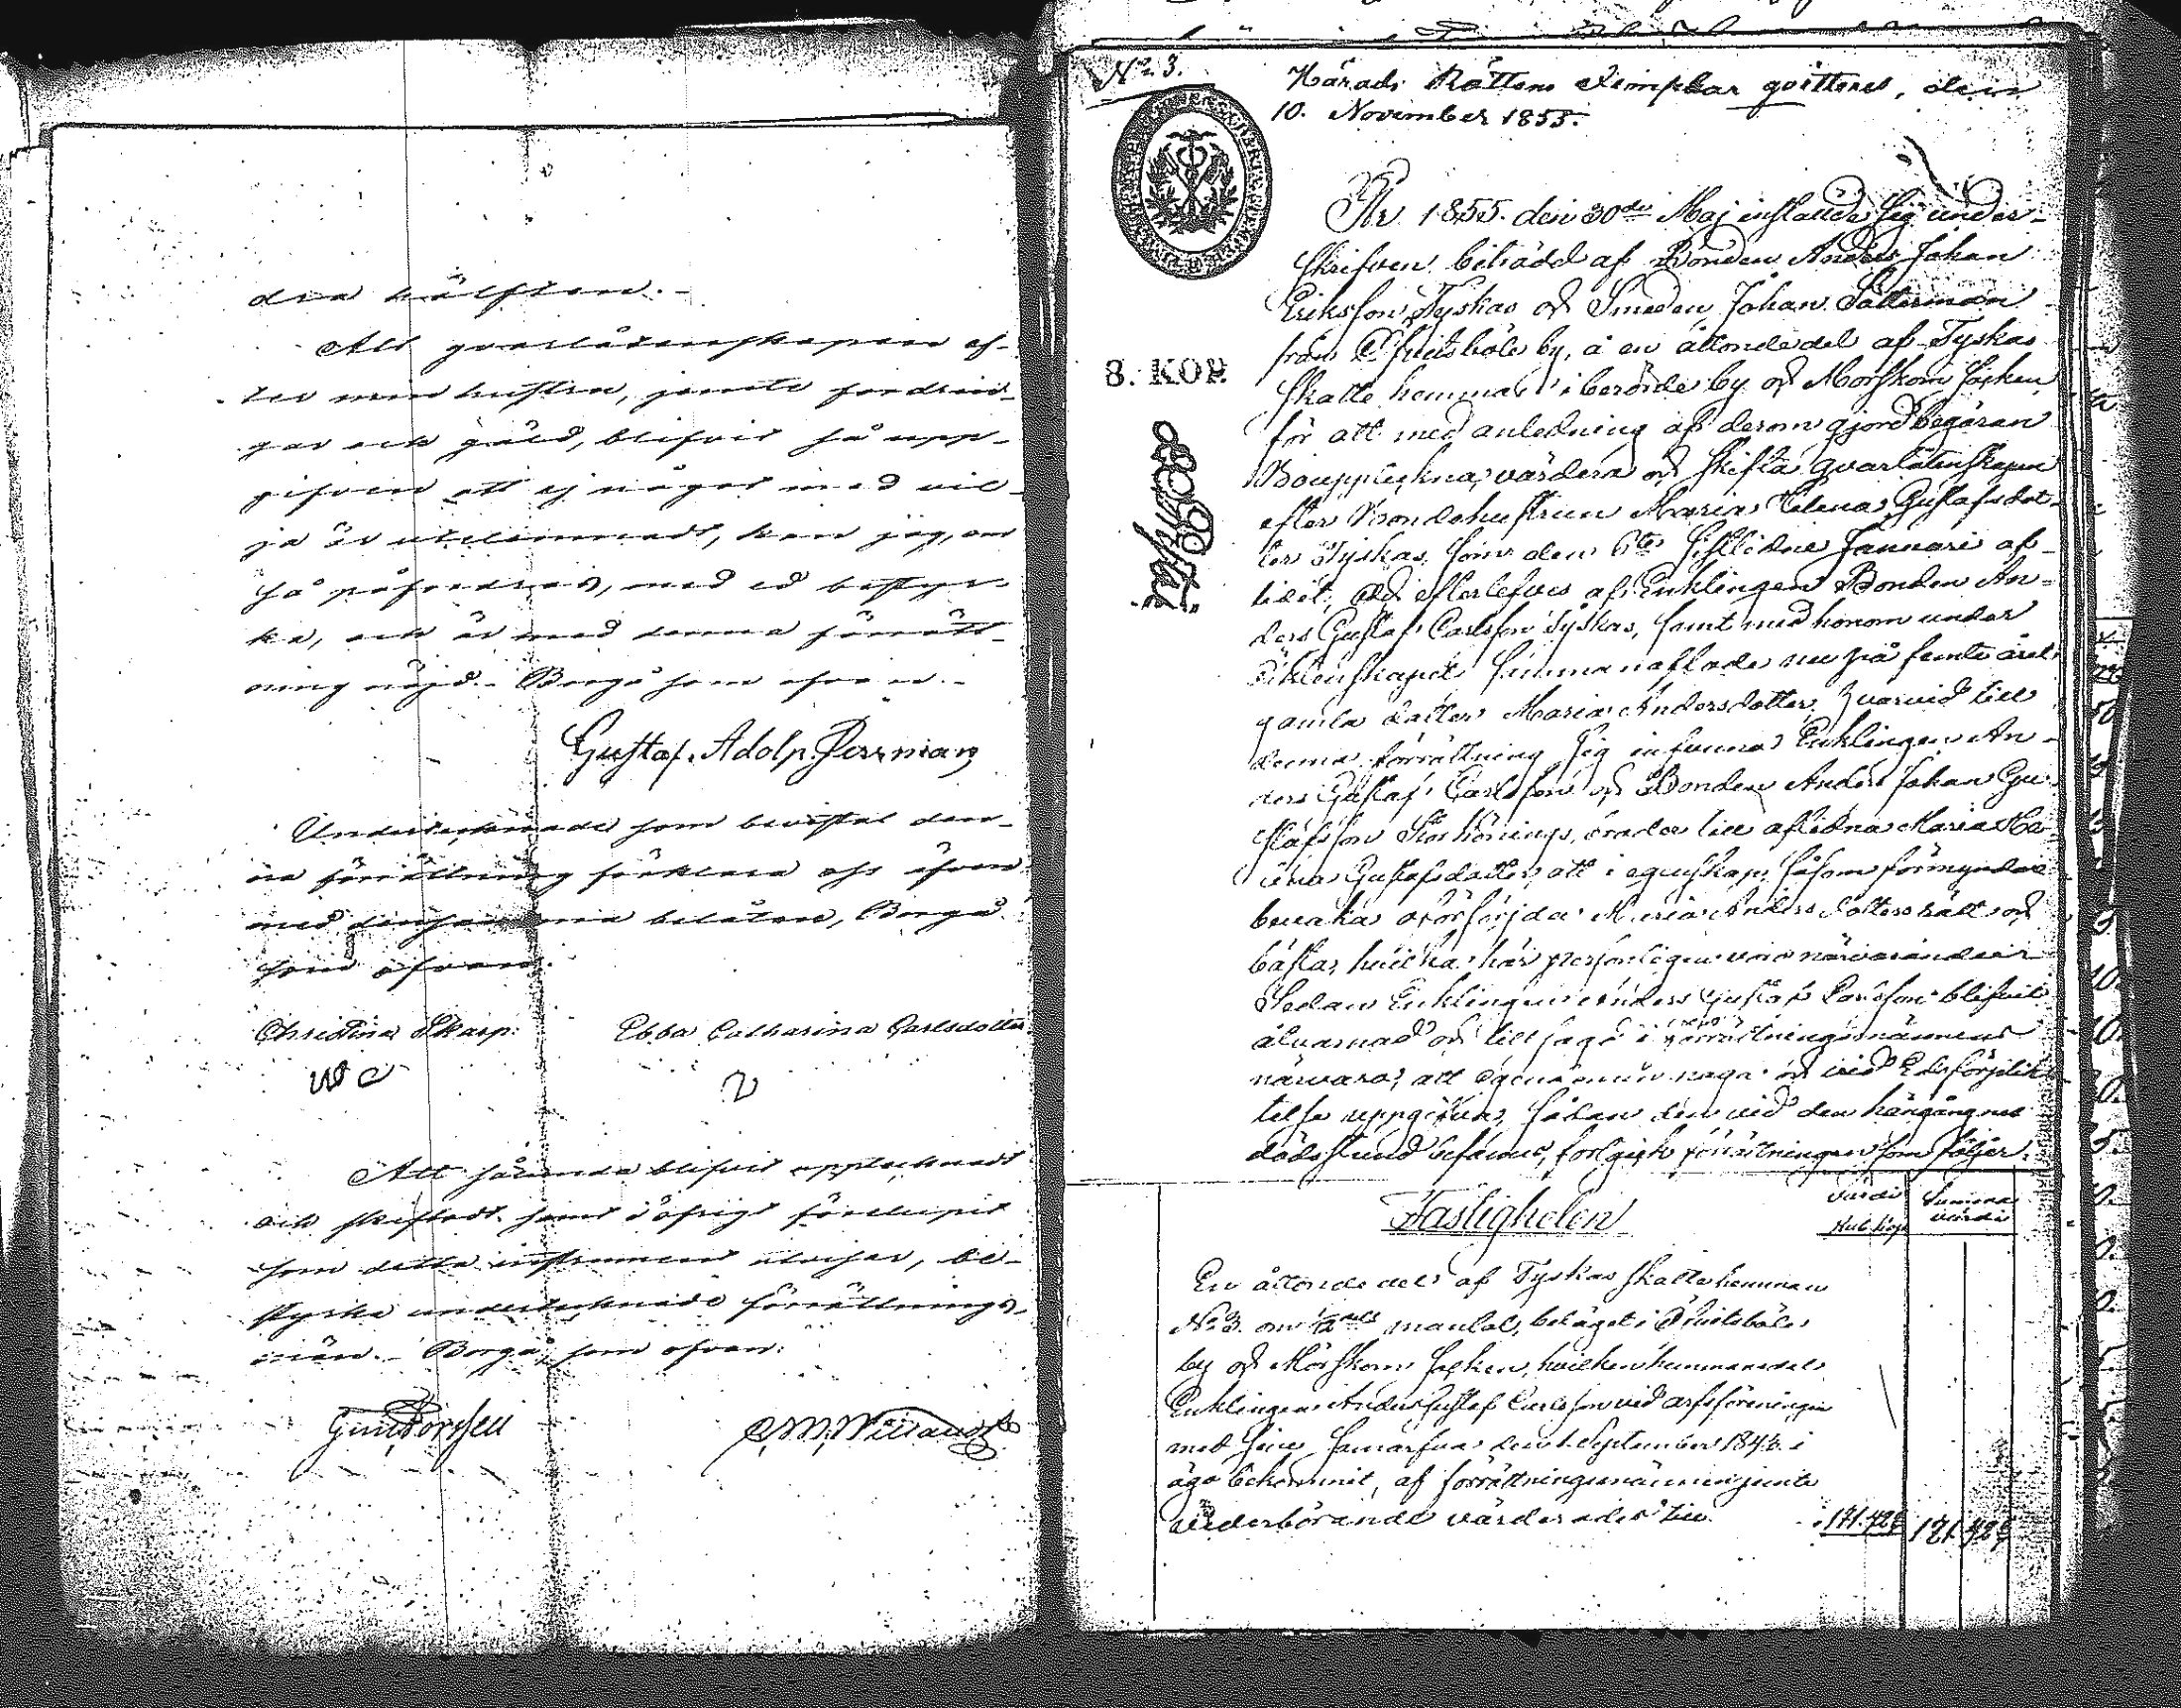 dra hälften.
All qvarlåtenskapen ef-
ter min hustru, jemte fordrin-
gar och gäld, blifvit så upp-
gifven att ej något med vil-
ja är utelemnadt, kan jag, om
så påfordras, med ed bestyr-
ka, och är med denna förrätt-
ning nöjd. Borgå som ofvan.
Gustaf Adolp
Undertecknade som bevistat den-
na förrättning förklara oss äfven
med densamma belåtne, Borgå
som ofvan.
Christina Skarp. Ebba Catharina Carlsdotter
Att sålunda blifvit upptecknadt
och skiftadt samt i öfrigt förelupit
som detta instrument utvisar, be-
styrka undertecknade förrättnings-
män. Borgå, som ofvan.
No 3.
Härads Rättens Exemplar qvitteras, den
10. November 1855.
8. KOP.
År 1855. den 30de Maj instälde sig under-
skrifven biträdd af Bonden Anders Johan
Eriksson Tyskas och Smeden Johan Sätterman
från by, å en åttondedel af Tyskas
skatte hemman i berörde by och Morskom socken
för att med anledning af derom gjord begäran
Bouppteckna, värdera och skifta qvarlåtenskapen
efter Bondehustrun Maria Helena Gustafsdot-
ter Tyskas, som den 6te sistlidne Januari af-
lidit, och efterlefves af Enklingen Bonden An-
ders Gustaf Carlsson Tyskas, samt med honom under
äktenskapet sammanaflade nu på femte året
gamla dotter Maria Andersdotter, hvarvid till
denna förrättning sig infunno Enklingen An-
ders Gustaf Carlsson och Bonden Anders Johan Gu-
stafsson broder till aflidna Maria He-
lena Gustafsdotter, att i egenskap såsom förmyndare
bevaka Maria Andersdotters rätt och
bästa, hvilka här personligen voro närvarande.
Sedan Enklingen Anders Gustaf Carlsson blifvit
åtvarnad och tillsagd i förrättningsmännens
närvaro, att egendomen noga och vid Edsförplik-
telse uppgifva, sådan den vid den hängångnes
dödsstund befanns, försiggick förrättningen som följer.
Fastigheten
Värde Summa
Rub. Kop. värde
En åttonde del af Tyskas skattehemman
No 3. om 1/2 mantal, beläget i
by och Mörskom socken, hvilken hemmansdel
Enklingen Anders Gustaf Carlsson vid arfsföreningen
med sine samarfvar den 1. September 184 i
ägo bekommit, af förrättningsmännen jemte
vederbörande värderades till 171.42 171.42